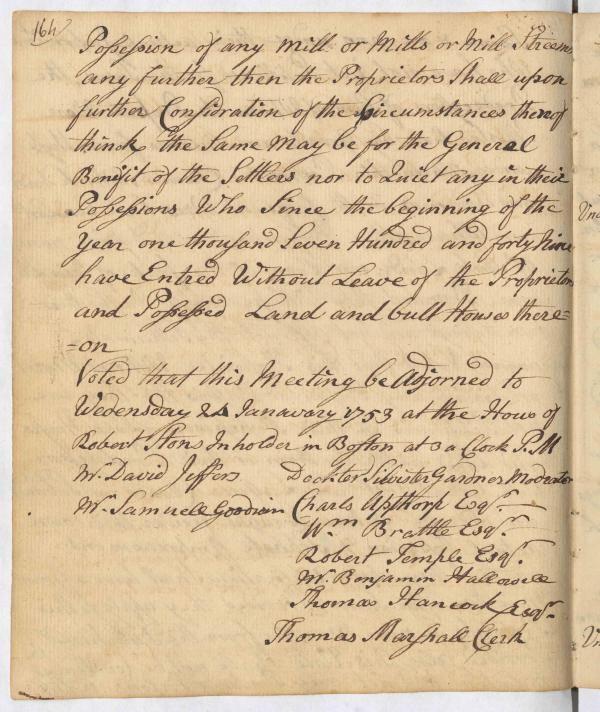 164
Possession of any mill or Mills or Mill Streems
any further then the Proprietors Shall upon
further Considration of the Circumstances therof
thinck the Same May be for the General
Benefit of the Settlers nor to Quiet any in their
Possessions Who Since the beginning of the
Year one thousand Seven Hundred and forty Nine
have Entred Without Leave of the Proprietors
and Possessed Land and built Houses there=
=on
Voted that this Meeting be Adjorned to
Wedensday 24 Janawary 1753 at the Hows of
Robert Stons Inholder in Boston at 3 a Clock P.M
Mr. David Jeffers Dockter Silvister Gardner Modrater
Mr. Samuell Goodwin Charls Apthorp Esqr.
Wm Brattle Esqr.
Robert Temple Esqr.
Mr. Benjamin Hallowell
Thomas Hancock Esqr.
Thomas Marshall Clerk